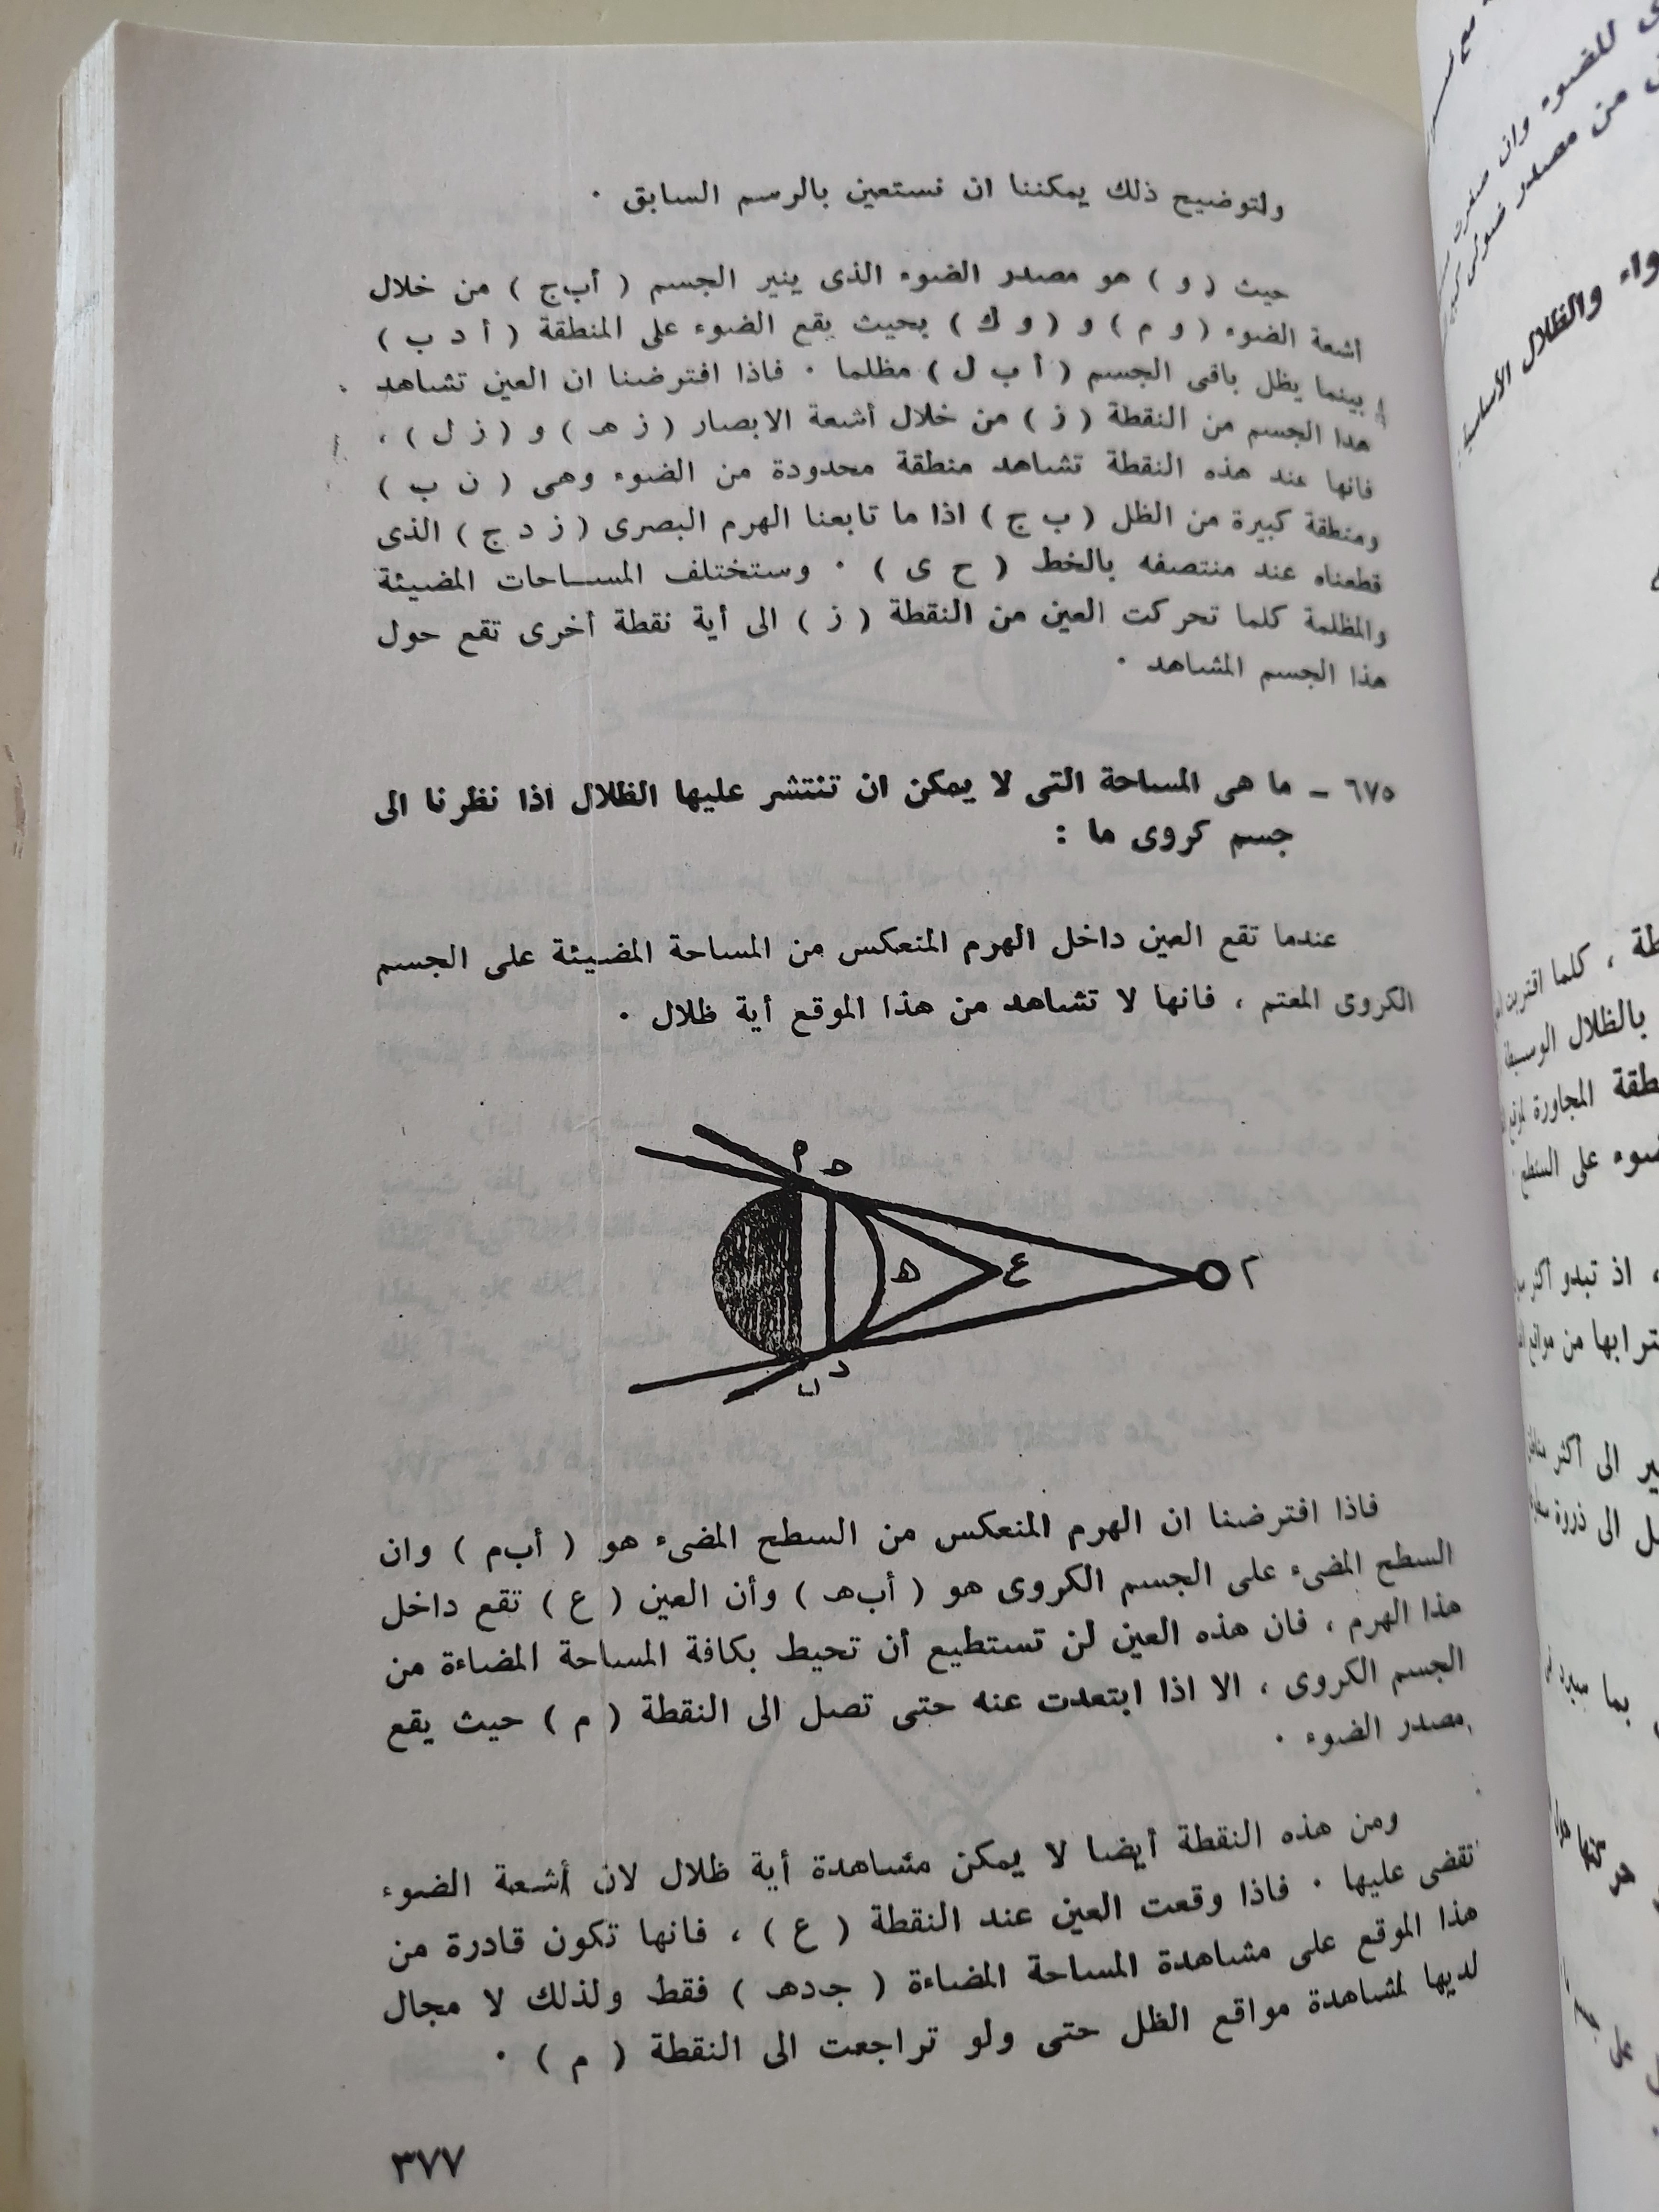 ولتوضيح ذلك يمكننا ان نستعين بالرسم السابق ٠
حيث ( و ) هو مصدر الضوء الذى ينير الجسم ( أب‌ج ) من خلال
أشعة الضوء ( و م ) و ( و ك ) بحيث يقع الضوء على المنطقة ( أ د ب )
بينما يظل باقى الجسم ( أ ب ل ) مظلما ٠ فاذا افترضنا ان العين تشاهد
هذا الجسم من النقطة ( ز ) من خلال أشعة الابصار ( ز هـ ) و ( ز ل ) ،
فانها عند هذه النقطة تشاهد منطقة محدودة من الضوء وهى ( ن ب )
ومنطقة كبيرة من الظل ( ب ج ) اذا ما تابعنا الهرم البصرى ( ز د ج ) الذى
قطعناه عند منتصفه بالخط ( ح ى ) ٠ وستختلف المساحات المضيئة
والمظلمة كلما تحركت العين من النقطة ( ز ) الى أية نقطة أخرى تقع حول
هذا الجسم المشاهد ٠
٦٧٥ ــ ما هى المساحة التى لا يمكن ان تنتشر عليها الظلال اذا نظرنا الى
جسم كروى ما :
عندما تقع العين داخل الهرم المنعكس من المساحة المضيئة على الجسم
الكروى المعتم ، فانها لا تشاهد من هذا الموقع أية ظلال ٠
م
ع
هـ
د
ب
فاذا افترضنا ان الهرم المنعكس من السطح المضىء هو ( أب‌م ) وان
السطح المضىء على الجسم الكروى هو ( أب‌هـ ) وأن العين ( ع ) تقع داخل
هذا الهرم ، فان هذه العين لن تستطيع أن تحيط بكافة المساحة المضاءة من
الجسم الكروى ، الا اذا ابتعدت عنه حتى تصل الى النقطة ( م ) حيث يقع
مصدر الضوء ٠
ومن هذه النقطة أيضا لا يمكن مشاهدة أية ظلال لان أشعة الضوء
تقضى عليها ٠ فاذا وقعت العين عند النقطة ( ع ) ، فانها تكون قادرة من
هذا الموقع على مشاهدة المساحة المضاءة ( جـ‌دهـ ) فقط ولذلك لا مجال
لديها لمشاهدة مواقع الظل حتى ولو تراجعت الى النقطة ( م ) ٠
٣٧٧